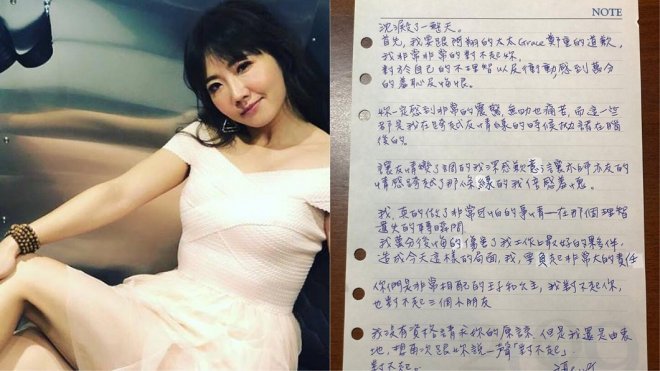 NOTE
沈澱了一整天。
首先，我要跟阿翔的太太Grace鄭重的道歉，
我非常非常的對不起妳，
對於自己的不理智以及衝動感到萬分
的羞恥及悔恨。
妳一定感到非常的震驚，無助也痛苦，而這一些
都是我在跨越友情線的時候拋諸在腦
後的。
讓友情變了調的我深感歉意，讓水乳交友的
情感跨越了那條線的我倍感羞愧。
我，真的做了非常可怕的事情—在那個理智
遺失的轉瞬間
我萬分後悔的傷害了我工作上最好的夥伴，
造成今天這樣的局面，我，要負起非常大的責任
你們是非常相配的王子和公主，我對不起你，
也對不起三個小朋友
我沒有資格請求你的原諒，但是我還是由衷
地，想再次跟妳說一聲「對不起」。
對不起。